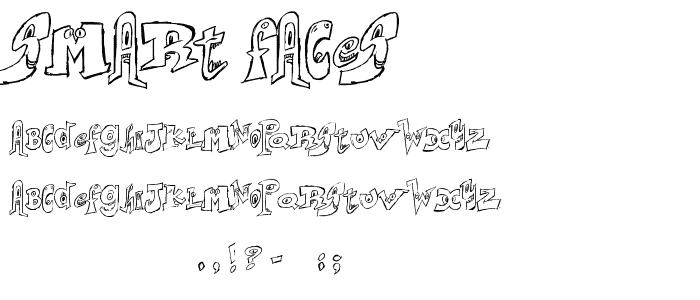 SMARt fACeS
ABCdefghiJKLMNOPQRStuvWXYZ
ABCdefghiJKLMNOPQRStuvWXYZ
.,!?- :;